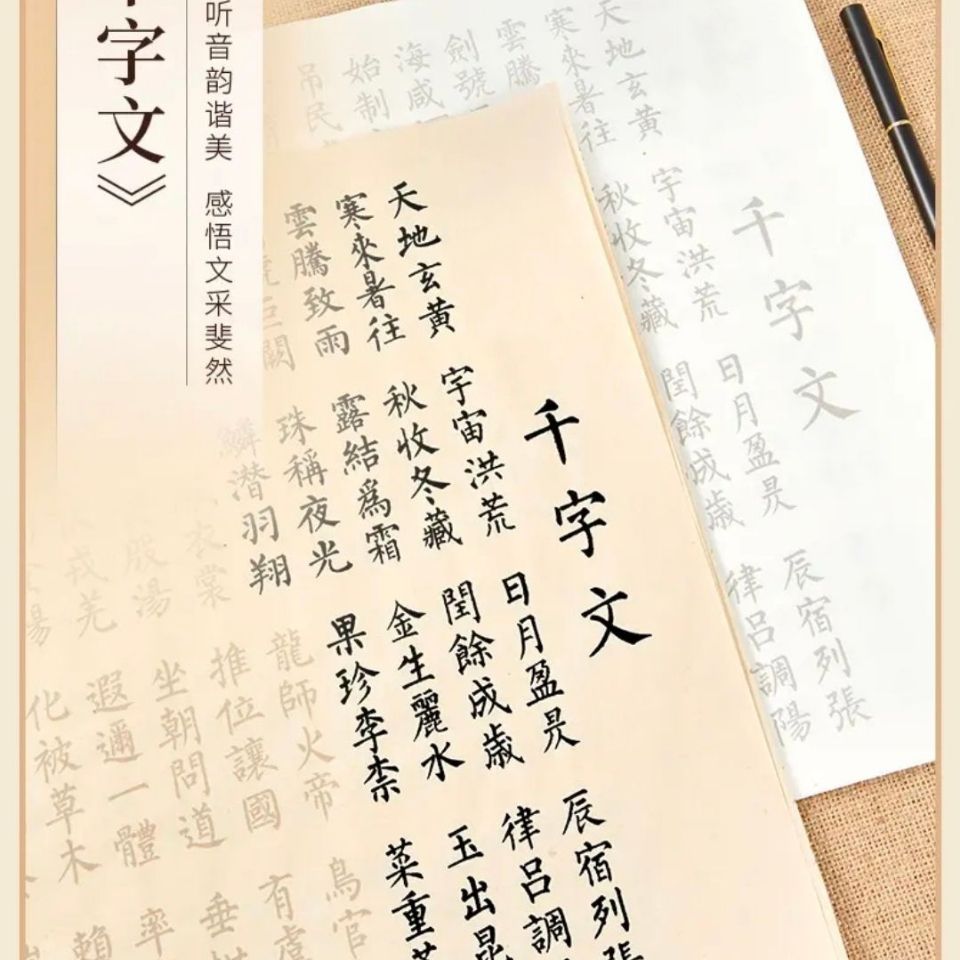 字文》
听音韵谐美 感悟文采斐然
千字文
天地玄黄 宇宙洪荒 日月盈昃 辰宿列張
寒來暑往 秋收冬藏 閏餘成歲 律吕調陽
雲騰
劍號
海咸
始制
吊民
千字文
天地玄黄 宇宙洪荒 日月盈昃 辰宿列張
寒來暑往 秋收冬藏 閏餘成歲 律吕調
雲騰致雨 露結爲霜 金生麗水 玉出
巨闕 珠稱夜光 果珍李柰 菜重
鱗潜羽翔 龍師火帝 鳥官
衣裳 推位讓國 有虞
殷湯 坐朝問道 垂
戎羌 遐邇一體 率
場 化被草木 賴